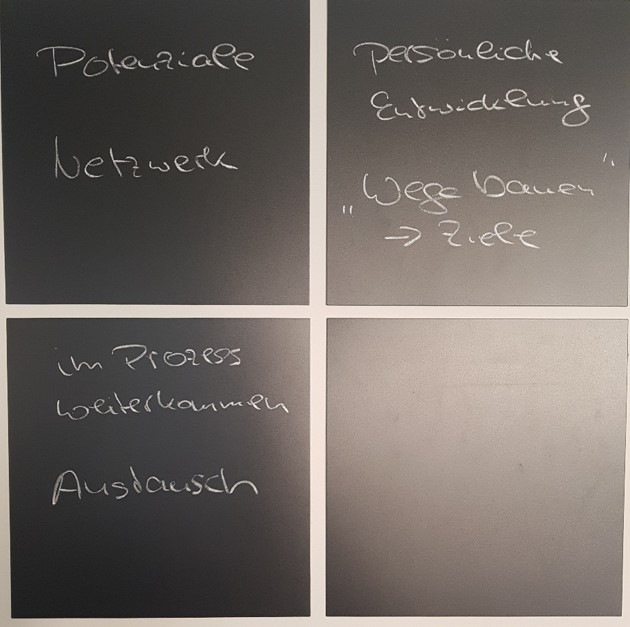 Potenziale
Netzwerk
persönliche
Entwicklung
„Wege bauen“
→ Ziele
im Prozess
weiterkommen
Austausch